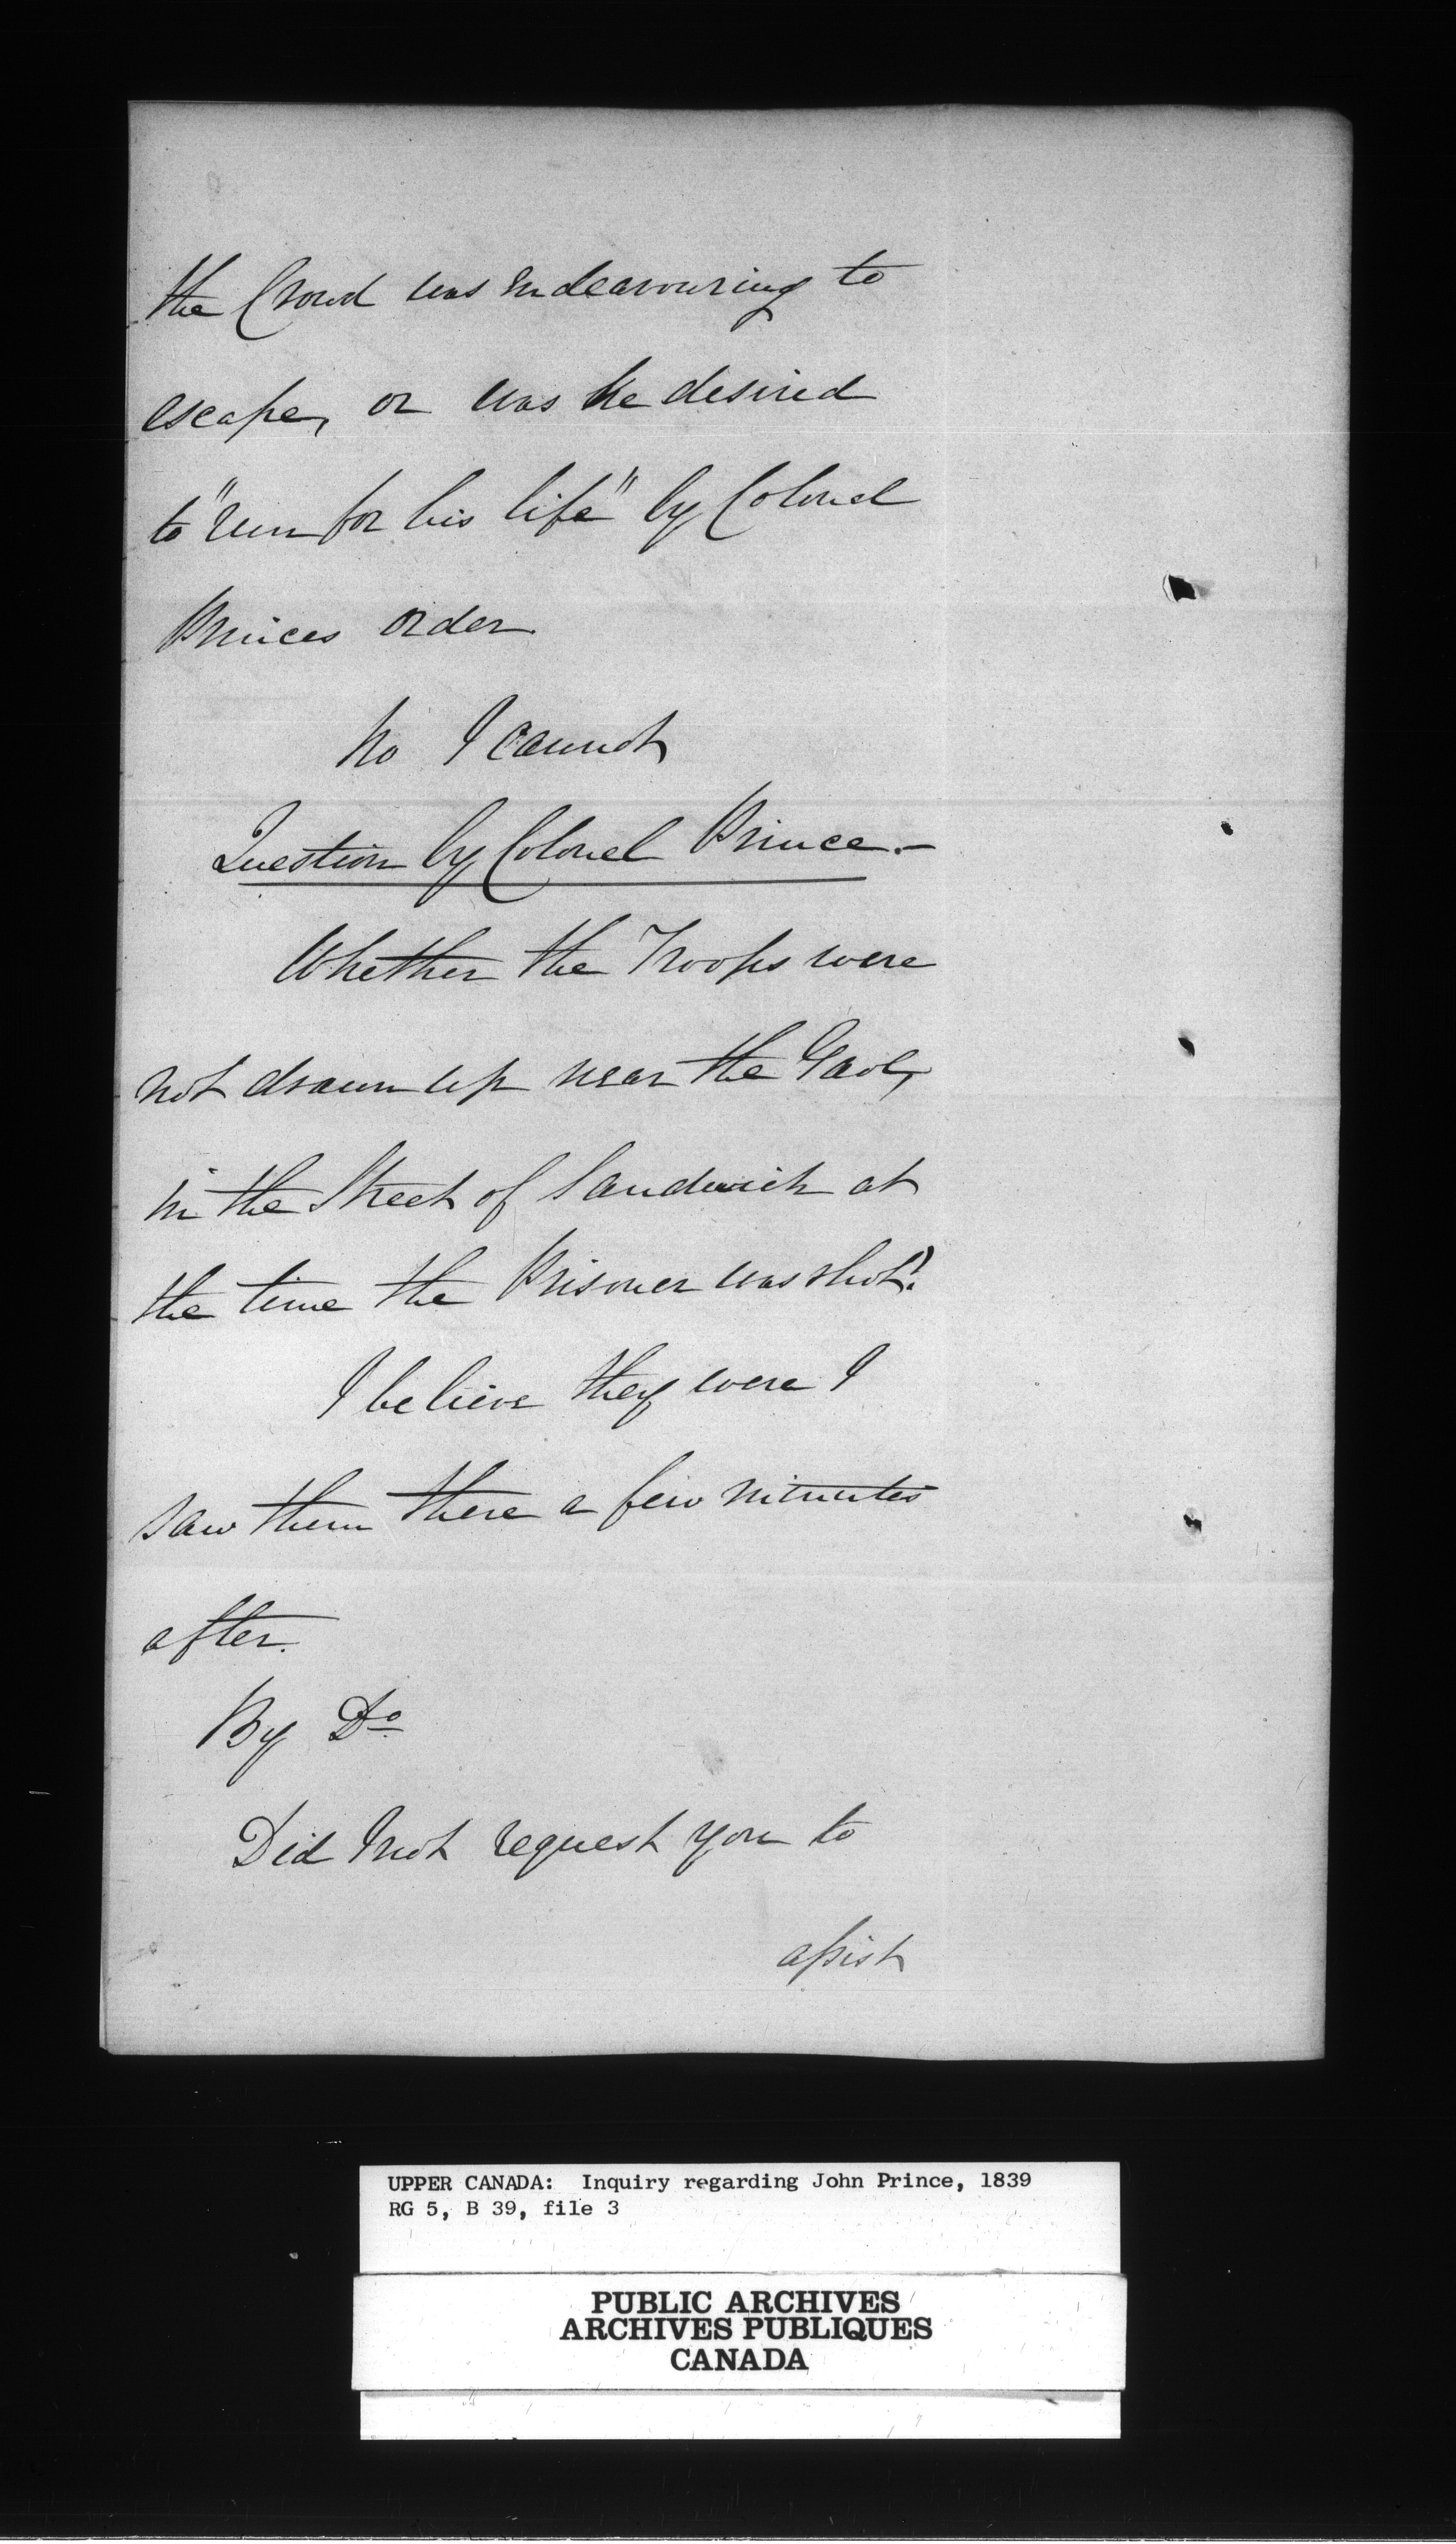 the Crowd was endeavouring to
escape, or was he desired
to "run for his life" by Colonel
Princes order
No I cannot
Question by Colonel Prince.—
Whether the Troops were
not drawn up near the Gaol,
in the Street of Sandwich at
the time the Prisoner was shot?
I believe they were I
saw them there a few minutes
after.
By Do
Did I not request you to
assist
UPPER CANADA: Inquiry regarding John Prince, 1839
RG 5, B 39, file 3
PUBLIC ARCHIVES
ARCHIVES PUBLIQUES
CANADA